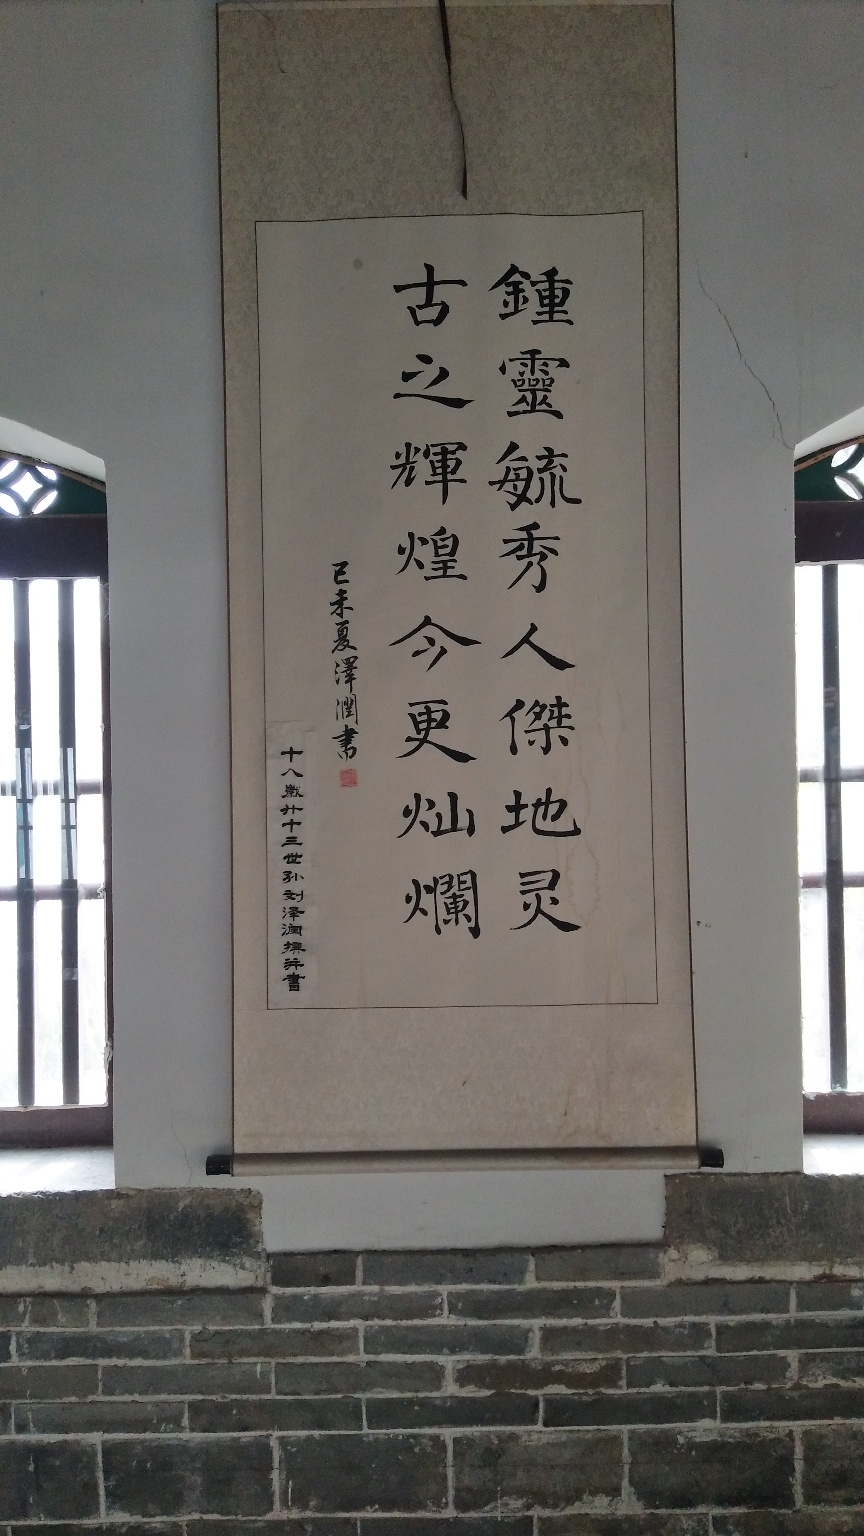 鍾靈毓秀人傑地灵
古之輝煌今更灿爛
己未夏澤潤書
十八歲廾十三世孙刘泽润撰并書